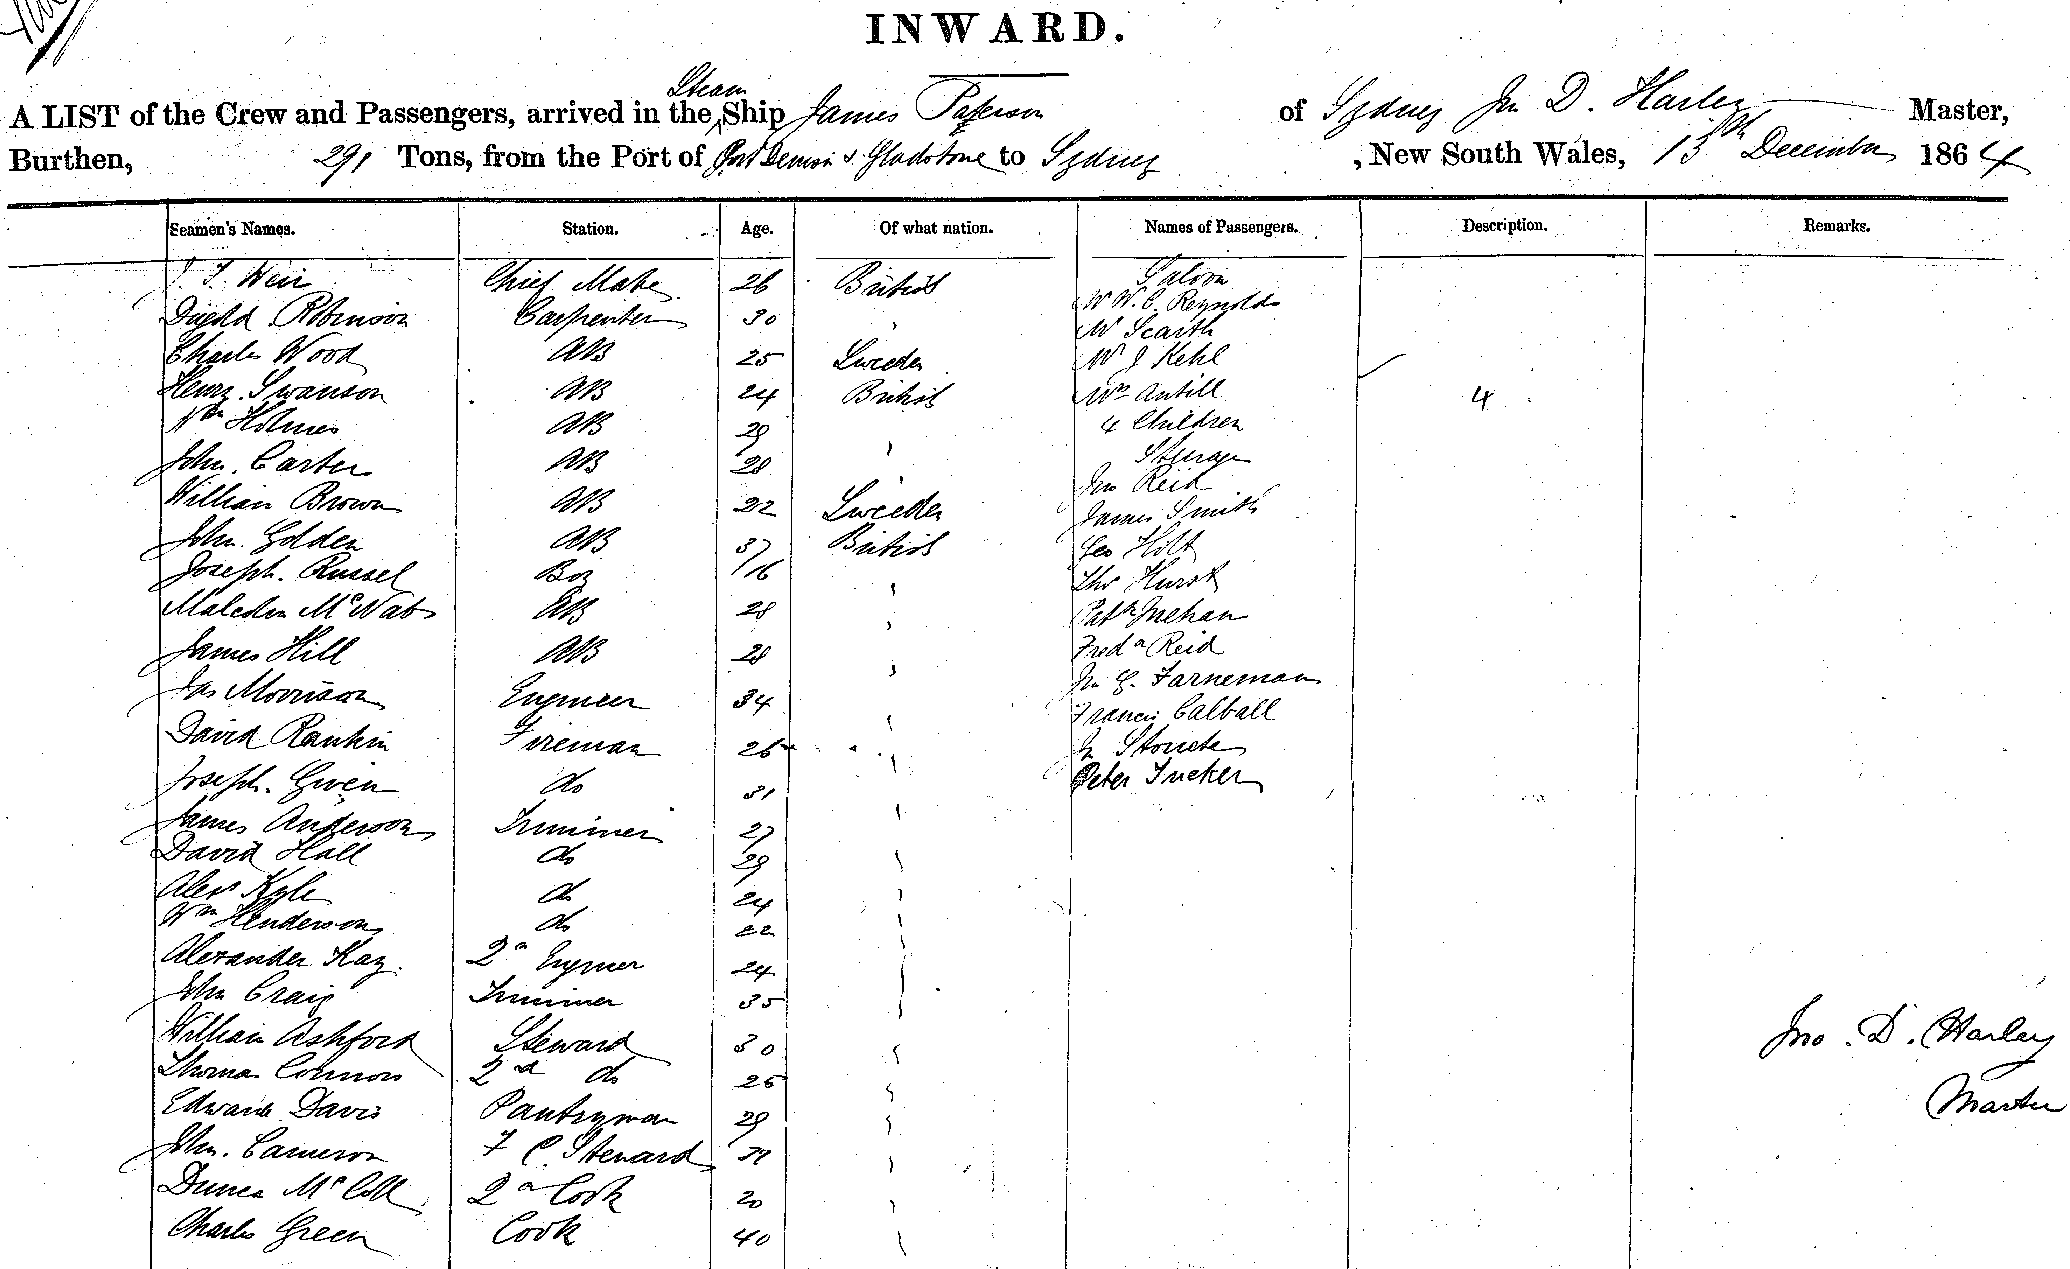 INWARD.
A LIST of the Crew and Passengers, arrived in the Steam Ship James Paterson of Sydney Jn D. Harley Master,
Burthen, 291 Tons, from the Port of Port Denison & Gladstone to Sydney, New South Wales, 13th December 1864
Seamen's Names. Station. Age. Of what nation. Names of Passengers. Description. Remarks.
J. Weir Chief Mate 26 British Saloon
Robinson Carpenter 30 W. C. Reynolds
Mr Scarth
Charles Wood AB 25 Sweden Mr J Kehl
Henry Swanson AB 24 British Mrs Antill 4
Wm Holmes AB 29 4 Children
John Carter AB 28 Steerage
Jno Reid
William Brown AB 22 Sweden James Smith
John Golden AB 37 British Geo Holt
Joseph Russel Boy 16 Thos Hurst
McNab AB 28 Patk Meehan
James Hill AB 28 Fredk Reid
Jas Morrison Engineer 34 Jn G. Farneman
Francis Calball
David Rankin Fireman 26 Jn
Joseph Gwen do 31 Peter Tucker
James Anderson Trimmer 27
David Hall do 29
Alexr Kyle do 24
Wm Henderson do 22
Alexander Kay 2d Engineer 24
John Craig Trimmer 35
William Ashford Steward 30 Jno. D. Harley
Thomas Connors 2d do 25
Edward Davis Pantryman 29 Master
John Cameron F C. Steward
Duncan McColl 2d Cook 20
Charles Green Cook 40